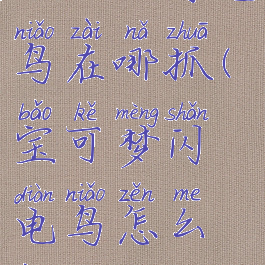 niǎo zài nǎ zhuā
鸟在哪抓(
bǎo kě mèng shǎn
宝可梦闪
diàn niǎo zěn me
电鸟怎么